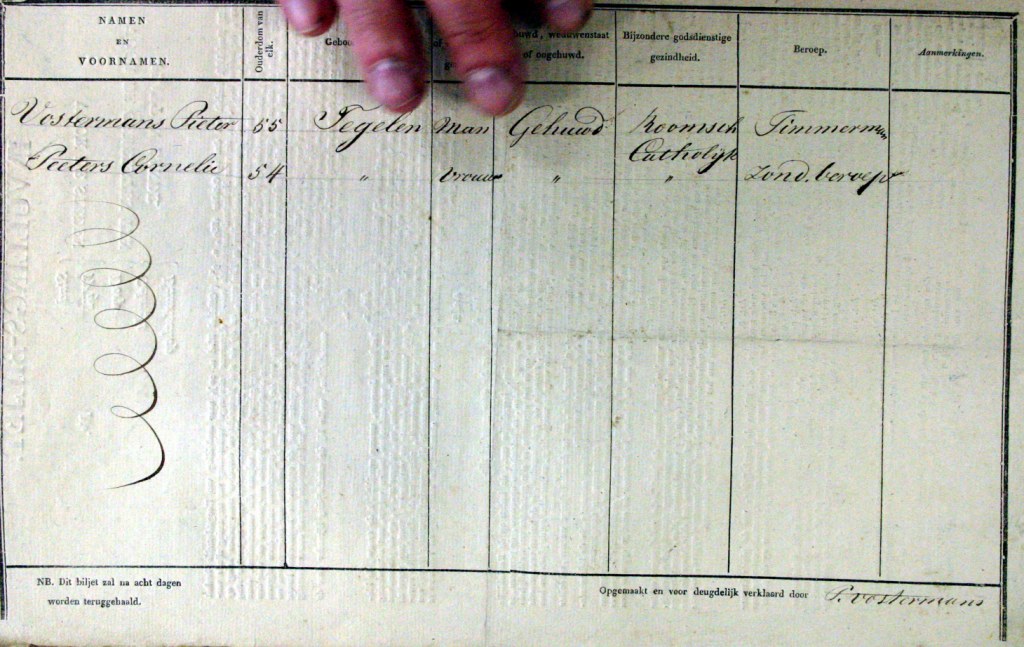 NAMEN
EN
VOORNAMEN.
Ouderdom van elk.
Geboo
huwd, weduwenstaat
of ongehuwd.
Bijzondere godsdienstige
gezindheid.
Beroep.
Aanmerkingen.
Vostermans Pieter 55 Tegelen Man Gehuwd Roomsch Timmerman
Catholijk
Peeters Cornelie 54 " Vrouw " " zond. beroep
NB. Dit biljet zal na acht dagen
worden teruggehaald.
Opgemaakt en voor deugdelijk verklaard door P. Vostermans